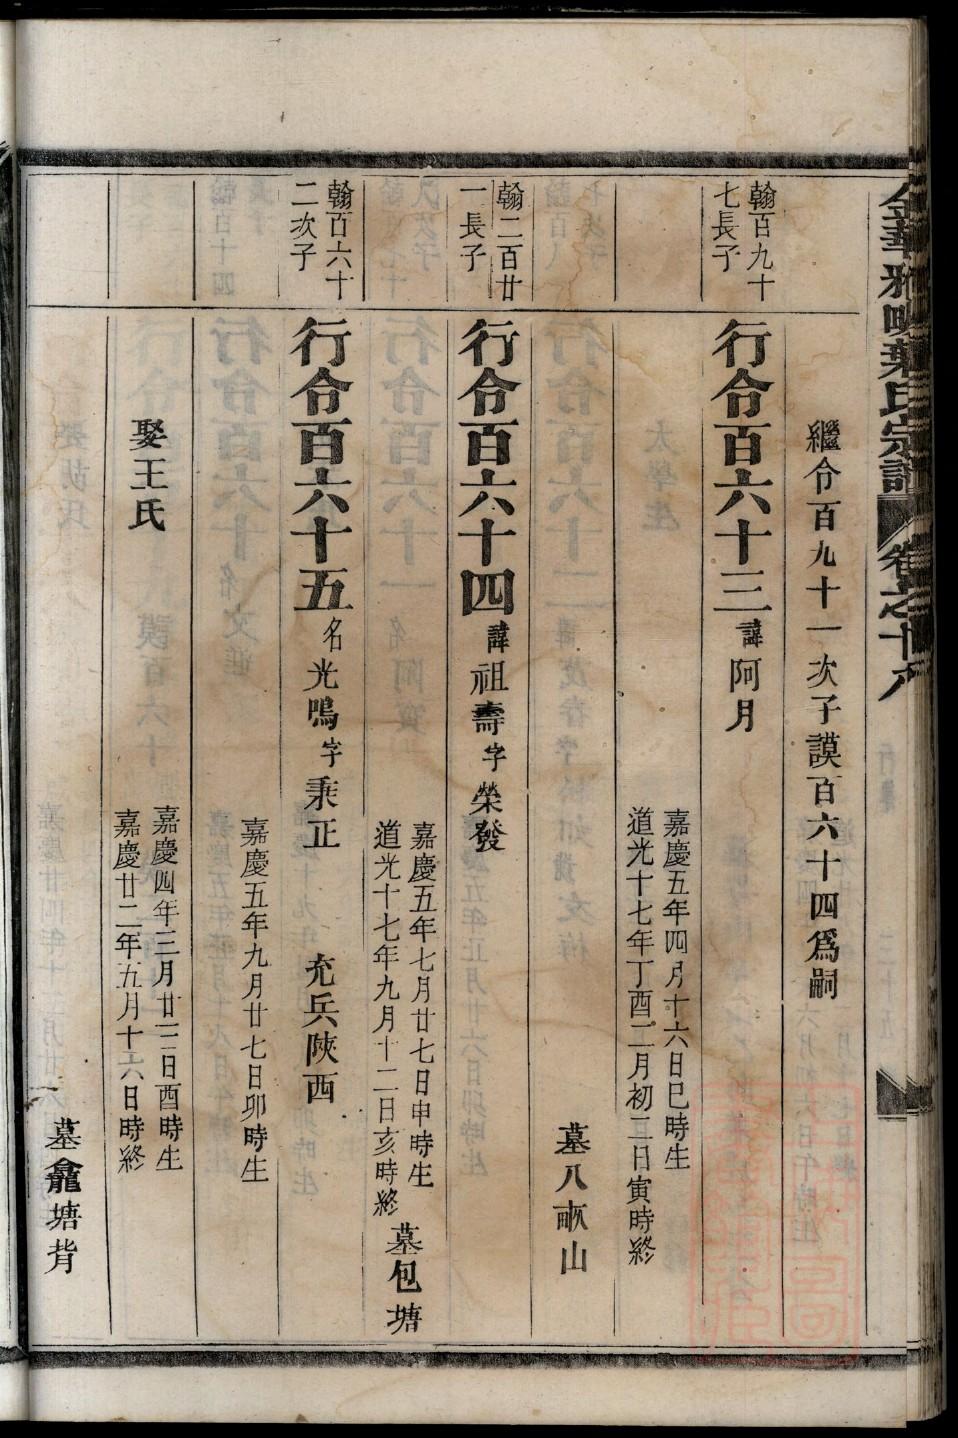 繼令百九十一次子謨百六十四爲嗣
翰百九十
七長子
行令百六十三諱阿月
嘉慶五年四月十六日巳時生
道光十七年丁酉二月初三日寅時終
墓八畝山
翰二百廿
一長子
行令百六十四諱祖壽字榮發
嘉慶五年七月廿七日申時生
道光十七年九月十二日亥時終
墓包塘
翰百六十
二次子
行令百六十五名光鳴字秉正
充兵陝西
嘉慶五年九月廿七日卯時生
娶王氏
嘉慶四年三月廿三日酉時生
嘉慶廿二年五月十六日時終
墓龕塘背